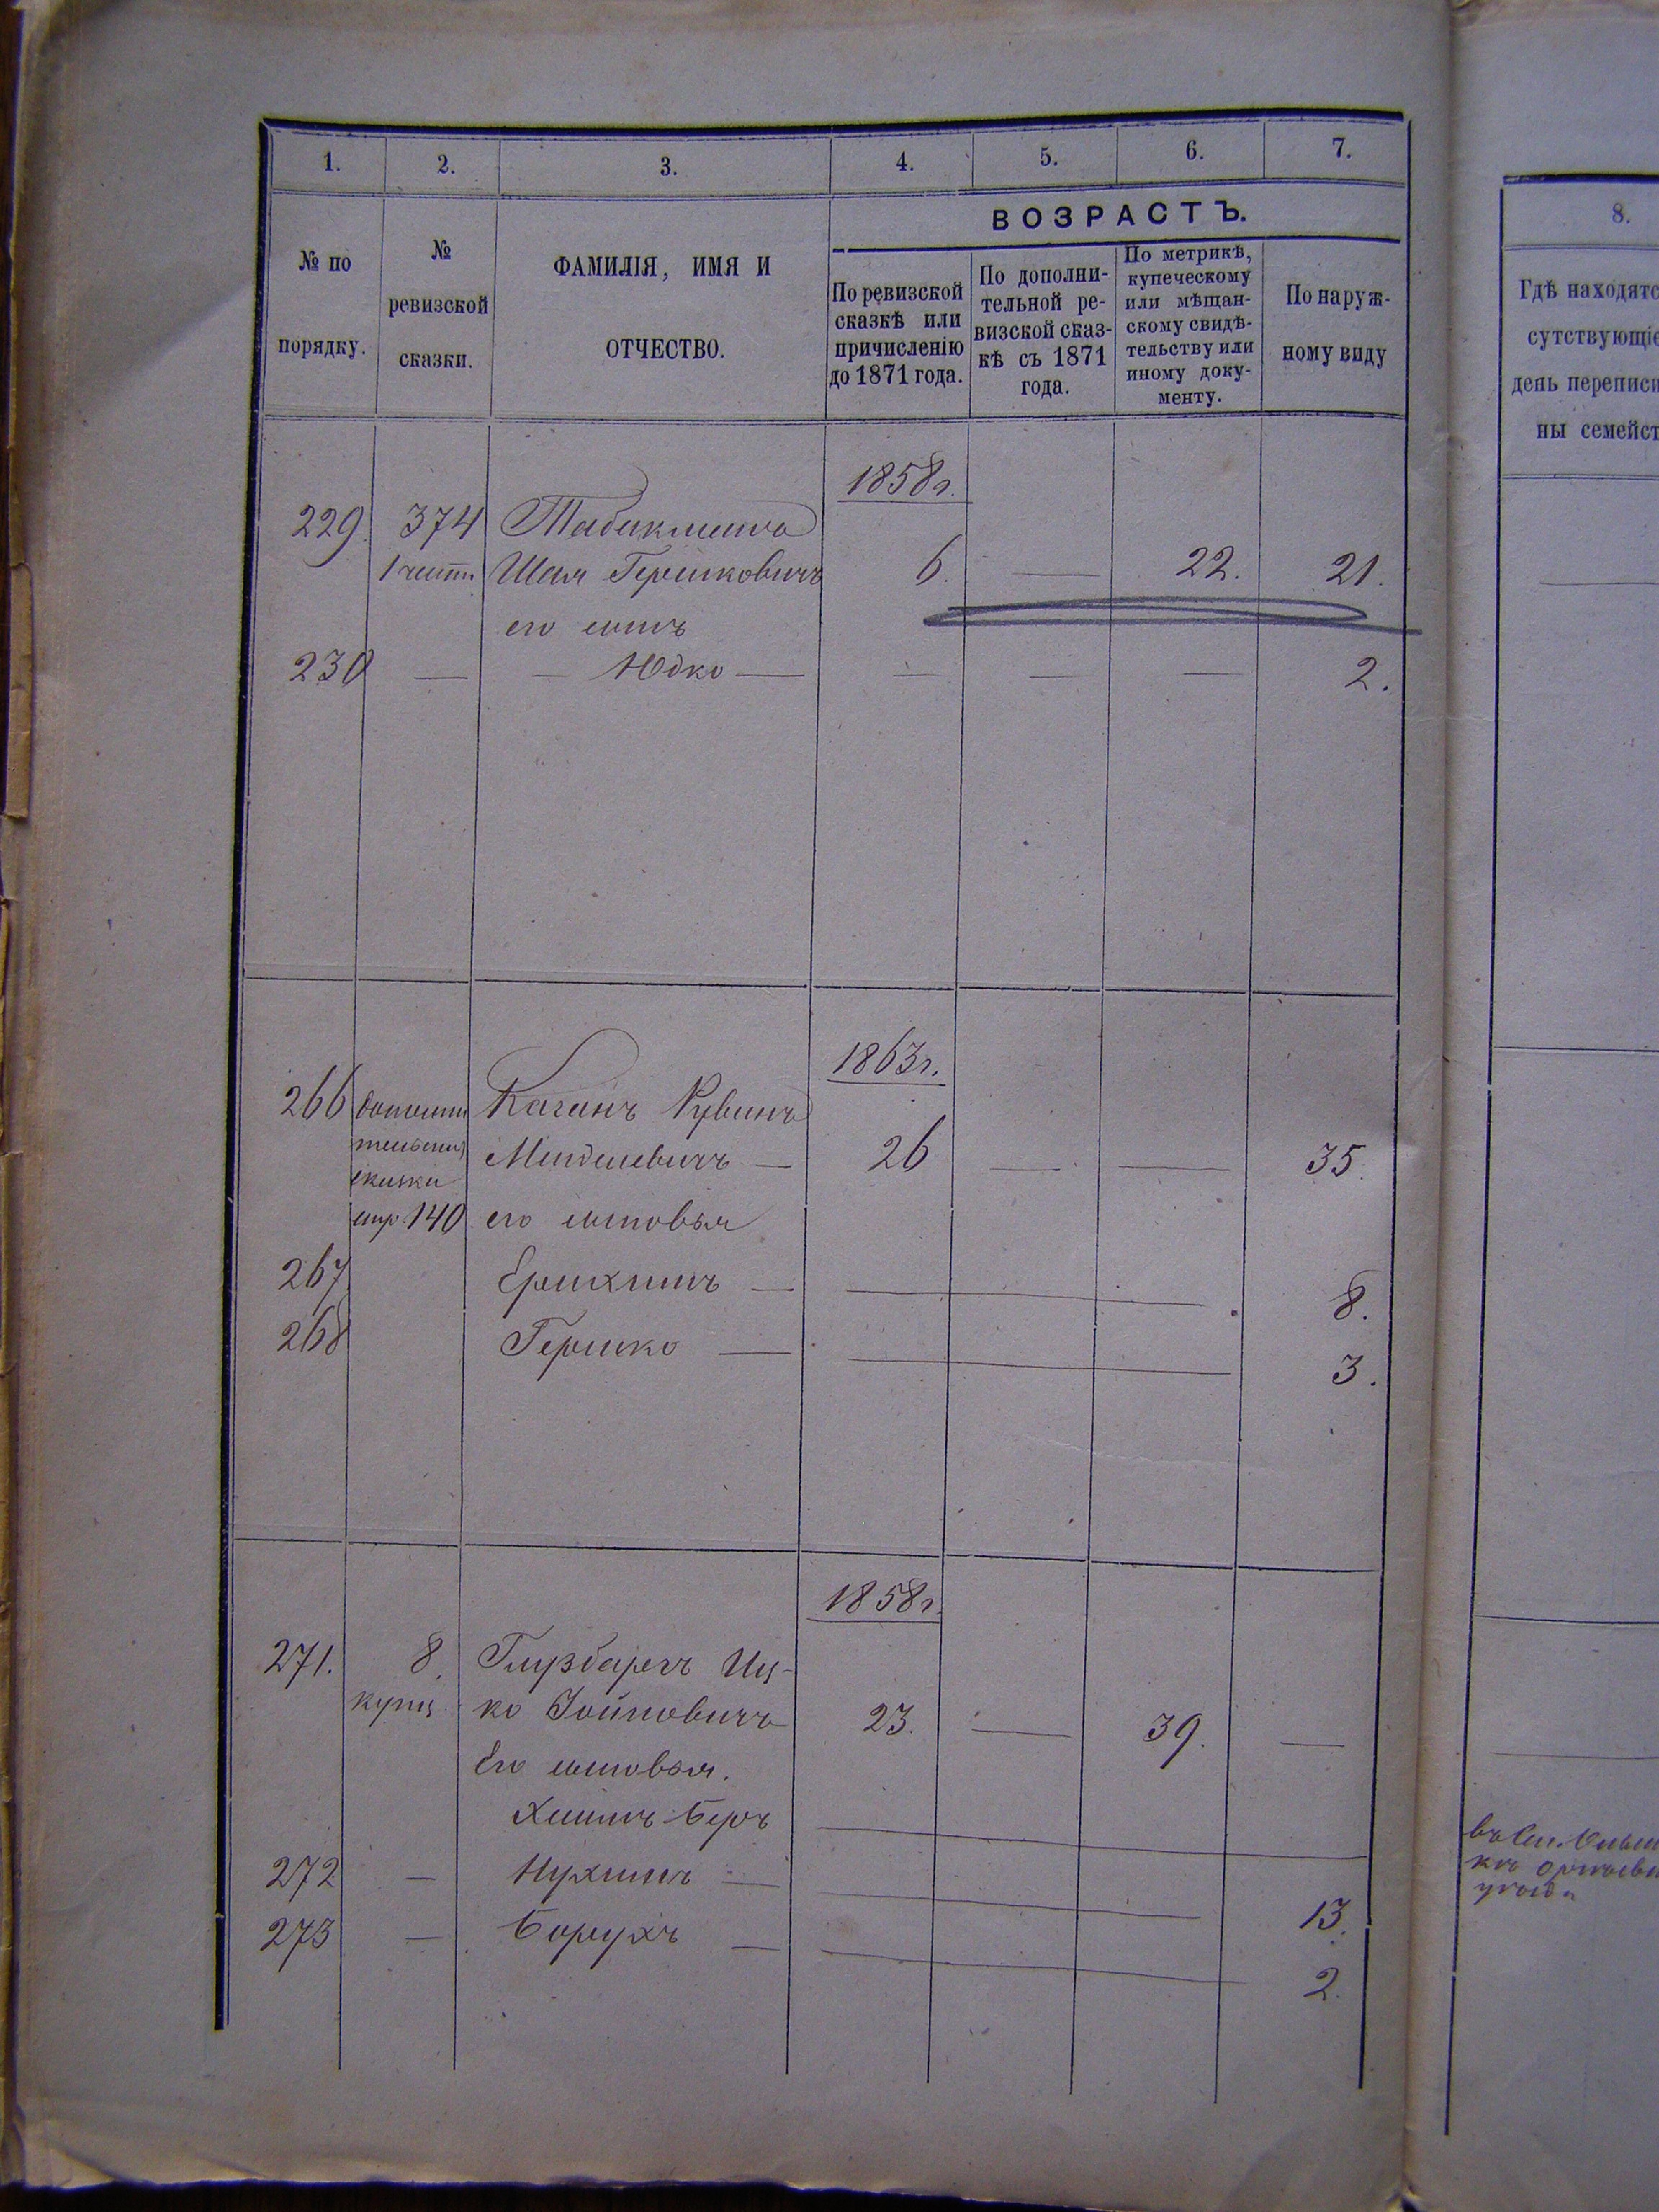 1. 2. 3. 4. 5. 6. 7.
ВОЗРАСТЪ.
№ по
порядку.
№
ревизской
сказки.
ФАМИЛІЯ, ИМЯ И
ОТЧЕСТВО.
По ревизской
сказкѣ или
причисленію
до 1871 года.
По дополни-
тельной ре-
визской сказ-
кѣ съ 1871
года.
По метрикѣ,
купеческому
или мѣщан-
скому свидѣ-
тельству или
иному доку-
менту.
По наруж-
ному виду
1858г.
229. 374
Шая Гершковичъ 6. — 22. 21.
его сынъ
230 — — Юдко — — — — 2.
1863г.
266 Каганъ Рувинъ
Менделевичъ — 26 — — 35.
стр. 140 его сыновья
267 — 8.
268 Гершко — 3.
1858г.
271. 8. Иц-
купц. ко 23. — 39. —
Его сыновья.
Беръ
272 — Нухимъ — 13.
273 — Борухъ — 2.
8.
Гдѣ находятс
сутствующіе
день переписи
ны семейст